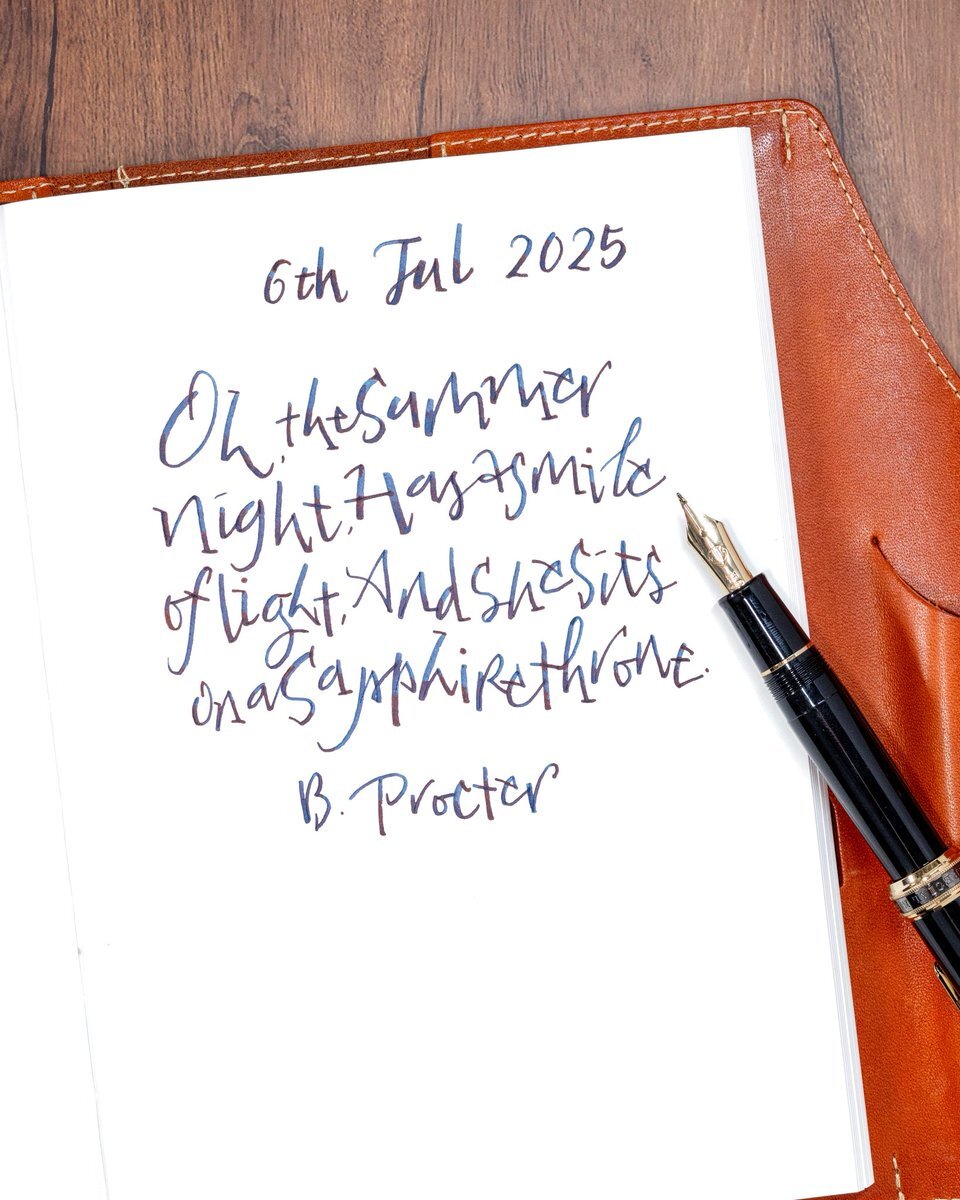 6th Jul 2025
Oh, the Summer
night, Has a smile
of light, And she sits
on a Sapphire throne.
B. Procter